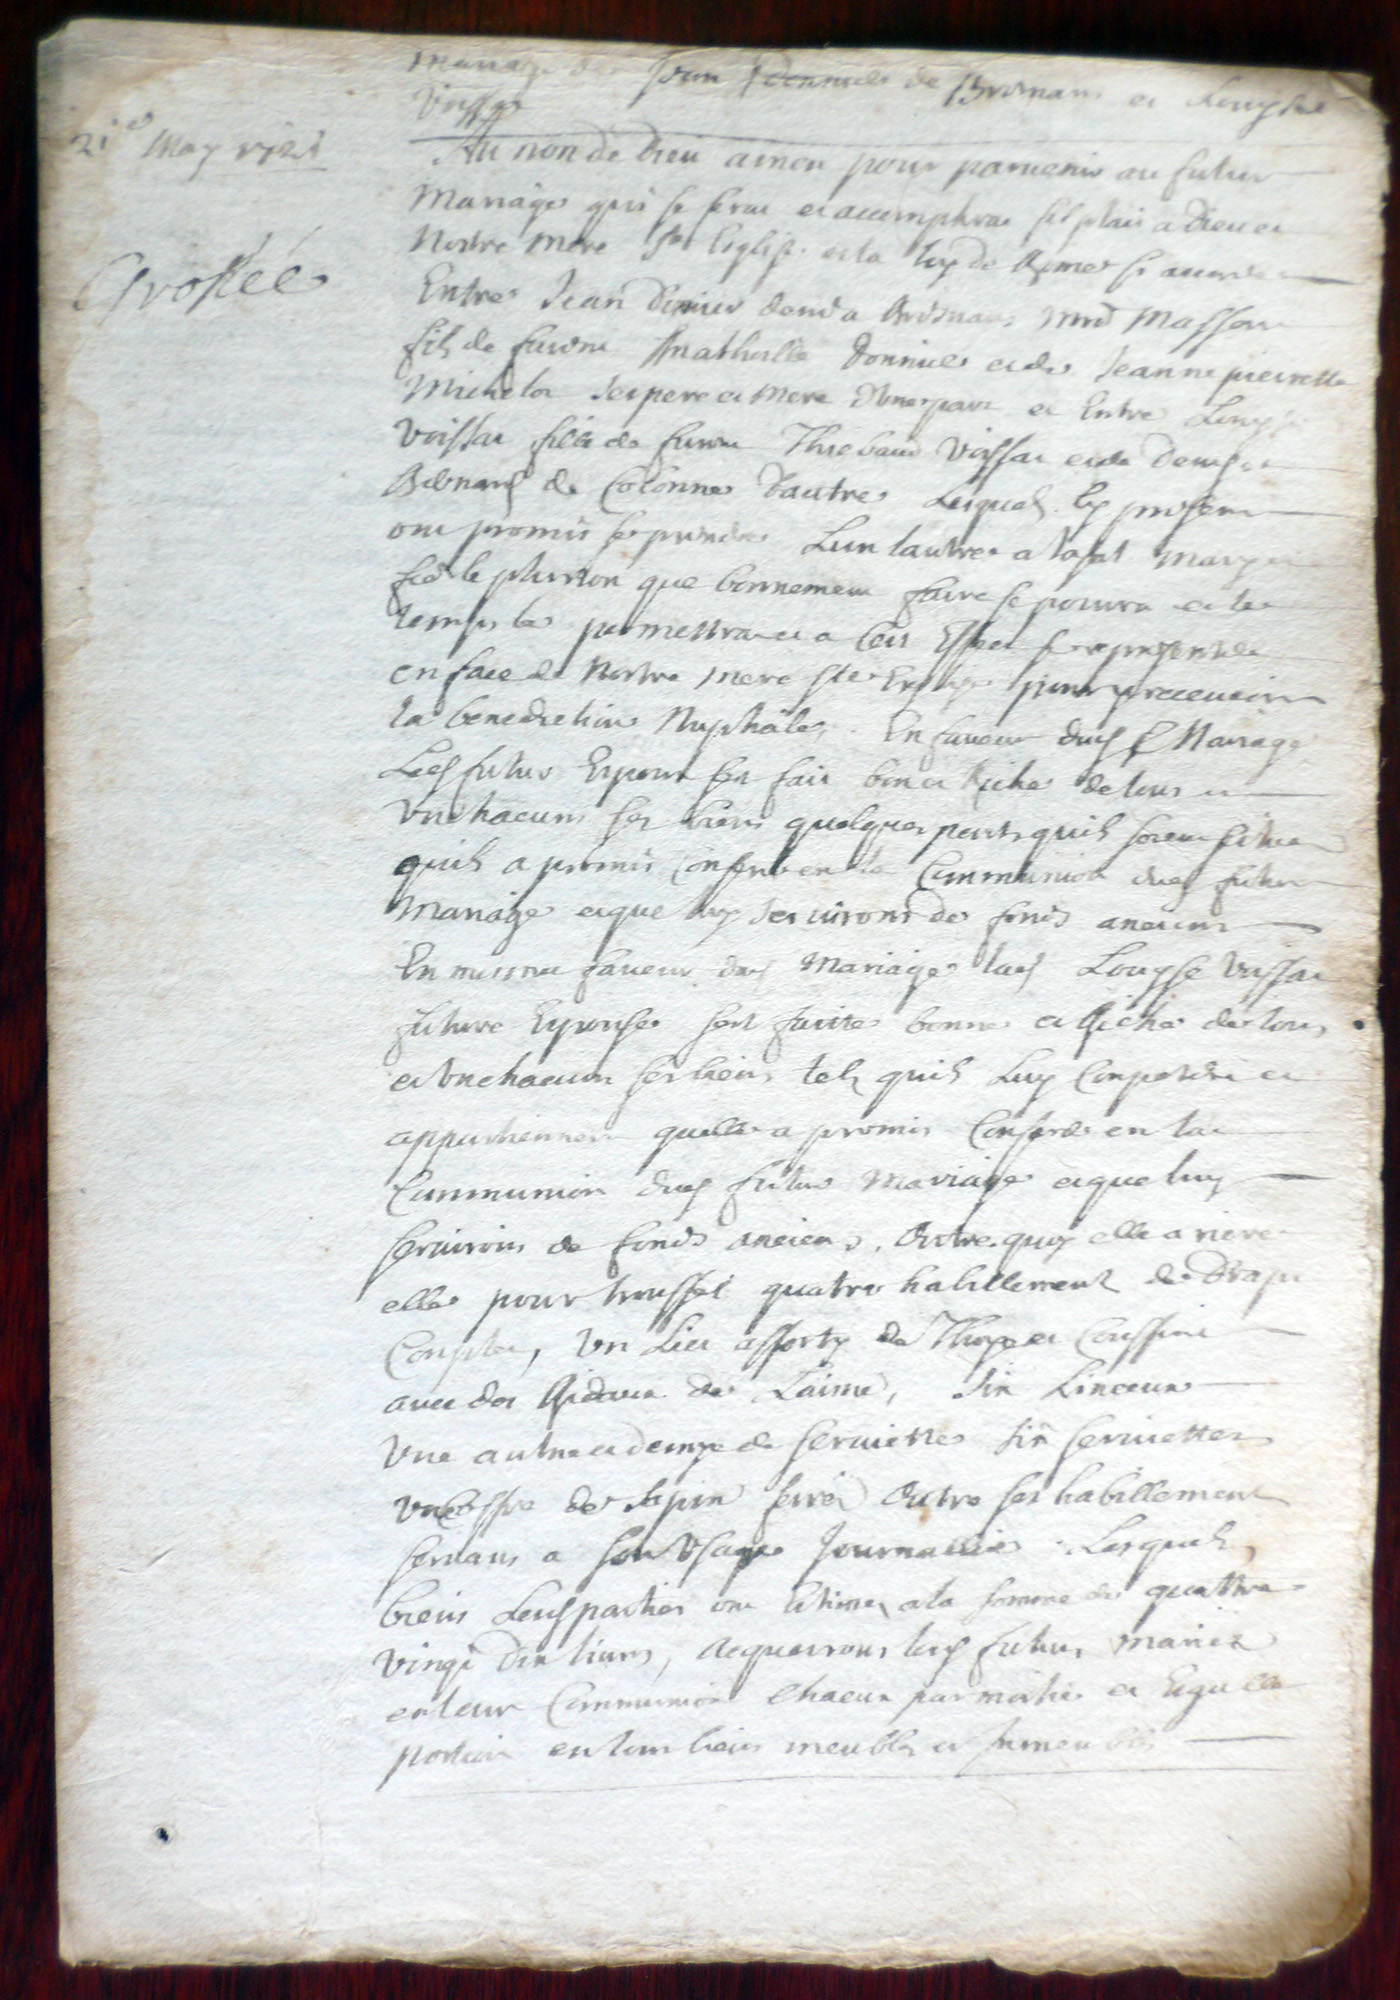 Mariage de Jean de et Louyse
Voissar
21e May 1721
Au nom de Dieu amen pour parvenir au futur
Mariage qui se fera et accomplira sil plait a Dieu et
Grossée
Nostre mere ste Eglise et la luy de Rome sy accorde
Entre Jean Masson
fils de Donniel et de Jeanne pierrette
Michelot ses pere et mere d'une part et Entre Louyse
Voissar fille de Thiebaud Voissar et de
de Colonne d'autre Lesquels Icy presens
ont promis se prendre Lun lautre a la
le plustôt que bonnement faire se pourra et le
temps le permettra et a Cest Effect se representer
en face de Nostre mere ste Eglise pour y recevoir
la benediction Nuptiale. En faveur dud Mariage
Led futur Epoux sest fait bon et Riche de tous et
Un chacuns ses biens quelques parts quils soient situez
quils a promis Conferer en la Communion dud futur
Mariage et que luy serviront de fond anciens
En mesme faveur dud Mariage lad Louyse Voissar
future Epouse sest faitte bonne et Riche de tous
et Un chacun ses biens tels quils Luy Competent et
appartiennent quelle a promis Conferer en la
Communion dud futur Mariage et que luy
serviront de fonds anciens, Outre quoy elle a riere
elle pour troussel quatre habillement de drap
Complet, Un Lict assorty de Thoye et Coussin
avec des Rideaux de Laine, six Linceux
Une autne et demye de serviette six serviettes
Un Coffre de sapin ferré Outre ses habillement
servans a son Usage Journallier. Lesquels
biens Lesd parties ont Estimez a la somme de quattre
vingt dix livres, Acquerront lesd futur mariez
en leur Communion Chacun par moitié et Egalle
portion en tous biens meubles et Immeubles